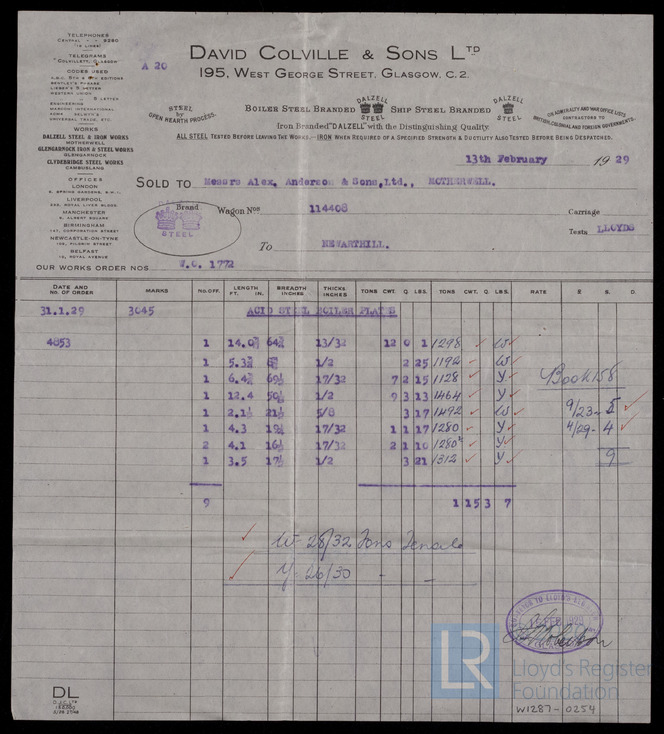 TELEPHONES
CENTRAL
TELEGRAMS
"COLVILLETT, GLASGOW"
CODES USED
LIEBER'S 5 LETTER
WESTERN UNION
ENGINEERING
MARCONI INTERNATIONAL
UNIVERSAL TRADE, ETC.
WORKS
DALZELL STEEL & IRON WORKS
MOTHERWELL
GLENGARNOCK IRON & STEEL WORKS
GLENGARNOCK
CLYDEBRIDGE STEEL WORKS
CAMBUSLANG
OFFICES
LONDON
LIVERPOOL
MANCHESTER
BIRMINGHAM
NEWCASTLE-ON-TYNE
BELFAST
A 20
DAVID COLVILLE & SONS LTD
195, WEST GEORGE STREET, GLASGOW, C. 2.
STEEL BY OPEN HEARTH PROCESS.
BOILER STEEL BRANDED DALZELL STEEL SHIP STEEL BRANDED DALZELL STEEL
ON ADMIRALTY AND WAR OFFICE LISTS
CONTRACTORS TO
BRITISH, COLONIAL AND FOREIGN GOVERNMENTS.
Iron Branded "DALZELL" with the Distinguishing Quality.
ALL STEEL TESTED BEFORE LEAVING THE WORKS. — IRON WHEN REQUIRED OF A SPECIFIED STRENGTH & DUCTILITY ALSO TESTED BEFORE BEING DESPATCHED.
13th February 1929
SOLD TO Messrs Alex. Anderson & Sons, Ltd., MOTHERWELL.
Brand
STEEL
Wagon Nos 114408
Carriage
Tests LLOYDS
To NEWARTHILL.
OUR WORKS ORDER NOS W.O. 1772
DATE AND NO. OF ORDER MARKS NO. OFF LENGTH FT. IN. BREADTH INCHES THICKS INCHES TONS CWT. Q LBS. TONS CWT. Q. LBS. RATE £ S. D.
31.1.29 3645 ACID STEEL BOILER PLATES
4853 1 14.0 64 13/32 12 0 1 1298 W
1 5.3 1/2 2 25 1194 W
1 6.4 69 17/32 7 2 15 1128 Y Book 158
1 12.4 50 1/2 9 3 13 1464 Y
1 2.1 21 5/8 3 17 1492 W 9/23 - 5
1 4.3 19 17/32 1 1 17 1280 Y 4/29 - 4
2 4.1 16 17/32 2 1 10 1280 Y
1 3.5 17 1/2 3 21 1312 Y 9
9 1 15 3 7
W - 28/32 Tons Tensile
Y - 26/30 - -
DL
LR
Lloyd's Register
Foundation
W1287-0254